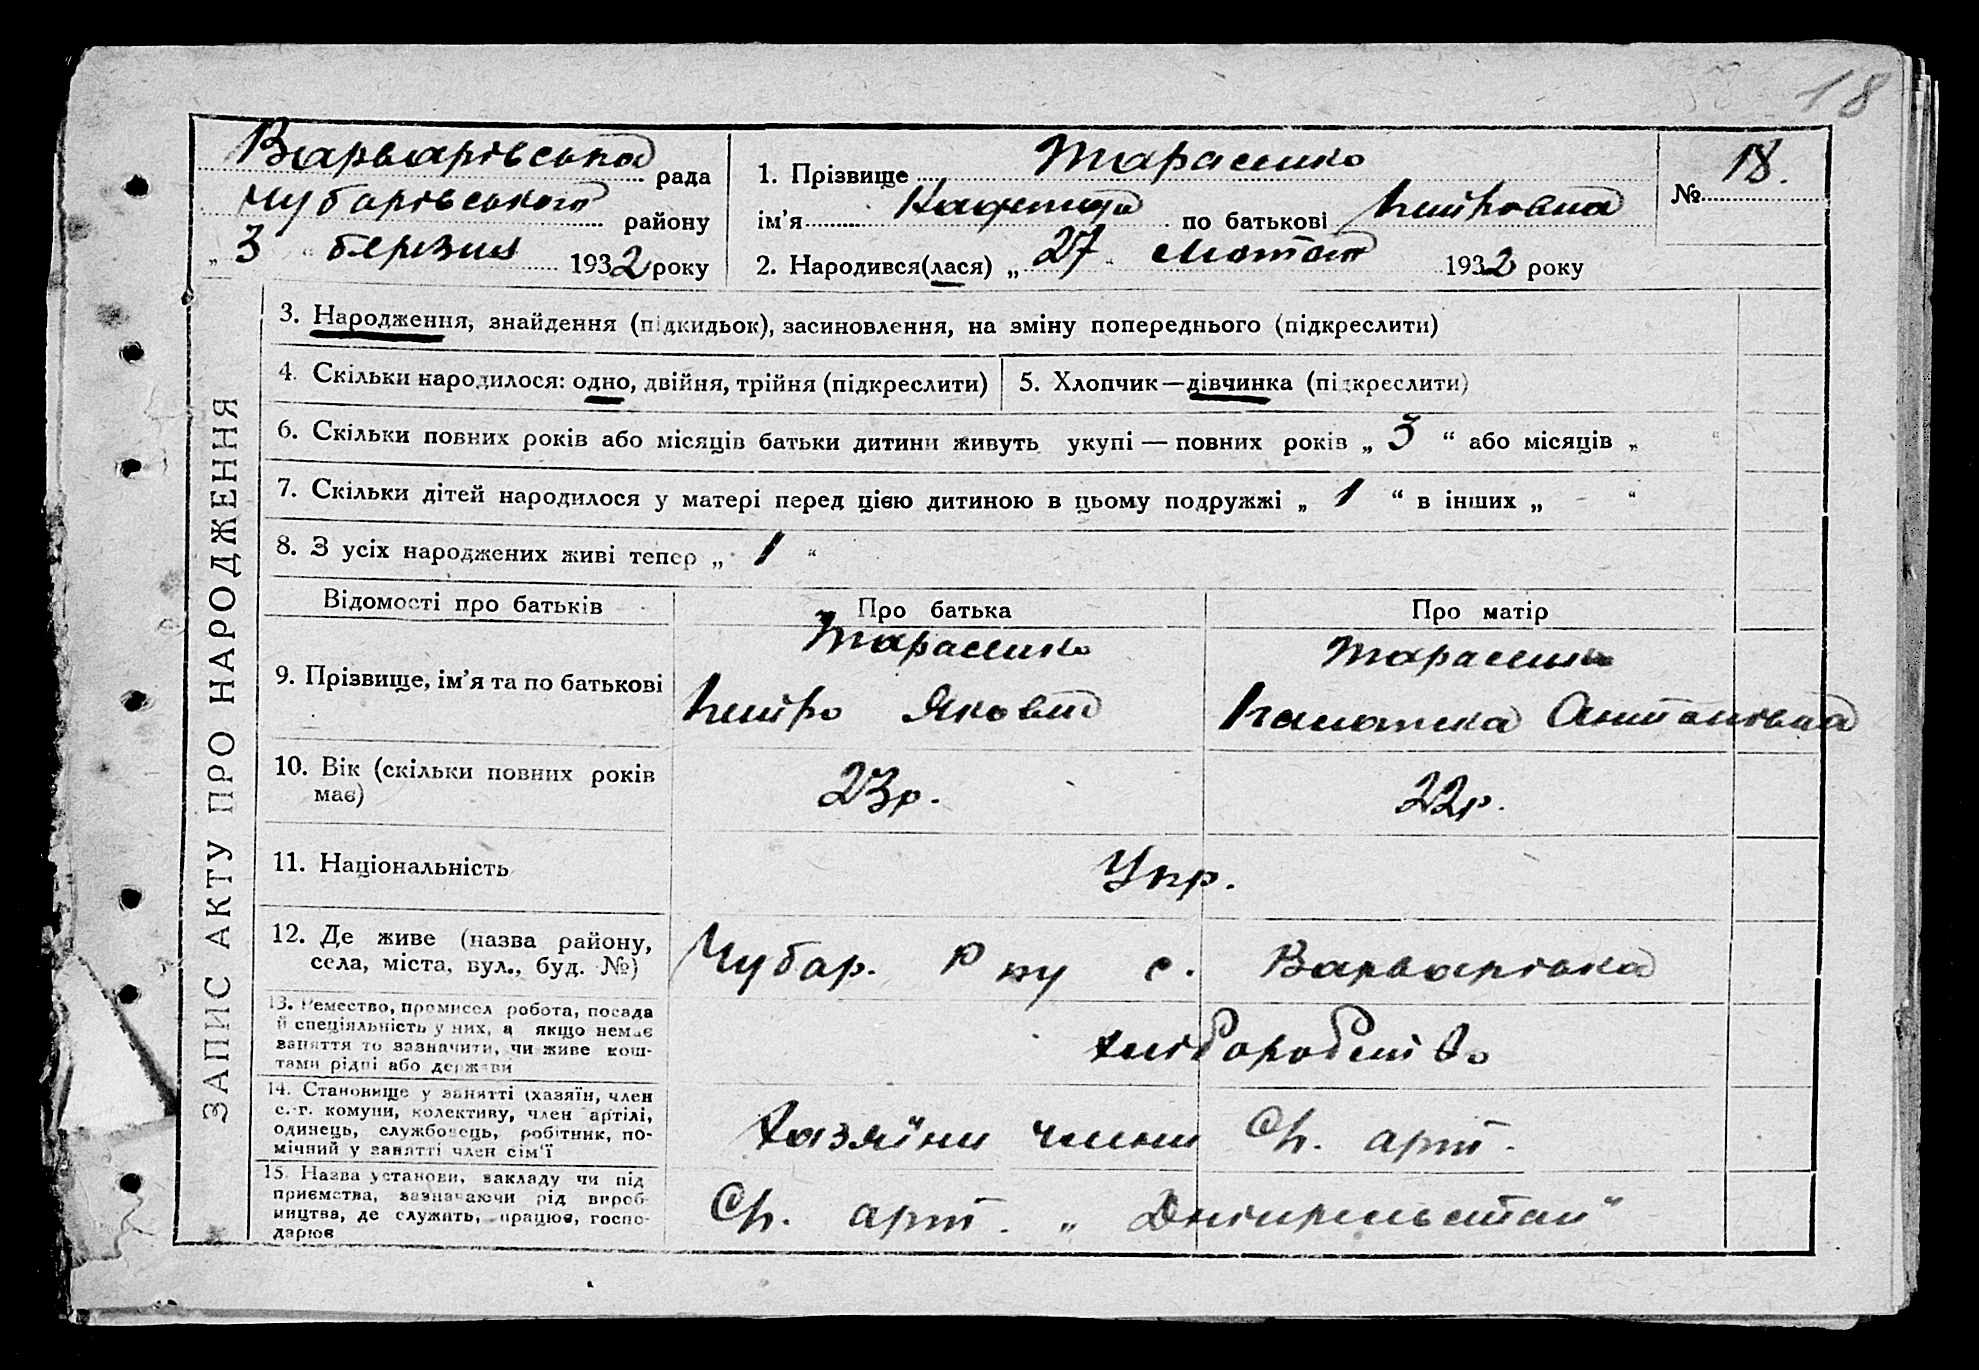 18
Варварівська рада
Чубарівського району
„ 3 “ березня 1932 року
1. Прізвище Тарасенко
ім’я по батькові Петровна
2. Народився(лася) „ 27 “ лютого 1932 року
№ 18.
ЗАПИС АКТУ ПРО НАРОДЖЕННЯ
3. Народження, знайдення (підкидьок), засиновлення, на зміну попереднього (підкреслити)
4. Скільки народилося: одно, двійня, трійня (підкреслити)
5. Хлопчик—дівчинка (підкреслити)
6. Скільки повних років або місяців батьки дитини живуть укупі — повних років „ 3 “ або місяців „ “
7. Скільки дітей народилося у матері перед цією дитиною в цьому подружжі „ 1 “ в інших „ - “
8. З усіх народжених живі тепер „ 1 “
Відомості про батьків
Про батька
Про матір
9. Прізвище, ім’я та по батькові
Тарасенко
Петро Якович
Тарасенко
Антоновна
10. Вік (скільки повних років
має)
23р.
22р.
11. Національність
Укр.
12. Де живе (назва району,
села, міста, вул., буд. №)
Чубар. Р ну с. Варварівка
13. Ремество, промисел робота, посада
й спеціяльність у них, а якщо немає
заняття то зазначити, чи живе кош-
тами рідні або держави
хліборобство
14. Становище у занятті (хазяїн, член
с.-г. комуни, колективу, член артілі,
одинець, службовець, робітник, по-
мічний у занятті член сім’ї
Хазяїни члени Сг. арт.
15. Назва установи, закладу чи під
приємства, зазначаючи рід вироб-
ництва, де служить, працює, госпо-
дарює
Сг. арт. „ Дніпрельстан “